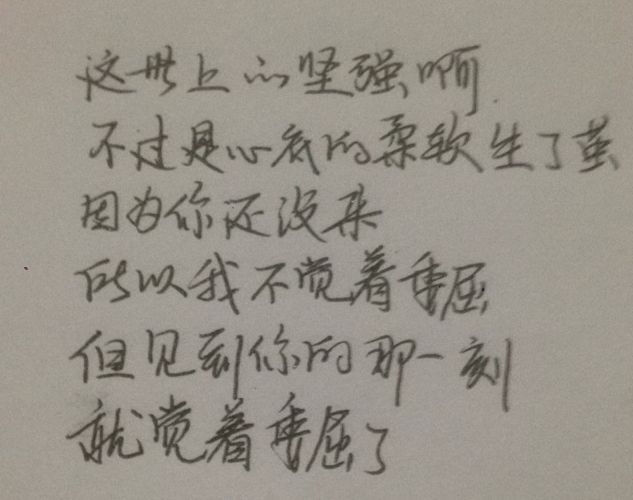 这世上的坚强啊
不过是心底的柔软生了茧
因为你还没来
所以我不觉着委屈
但见到你的那一刻
就觉着委屈了